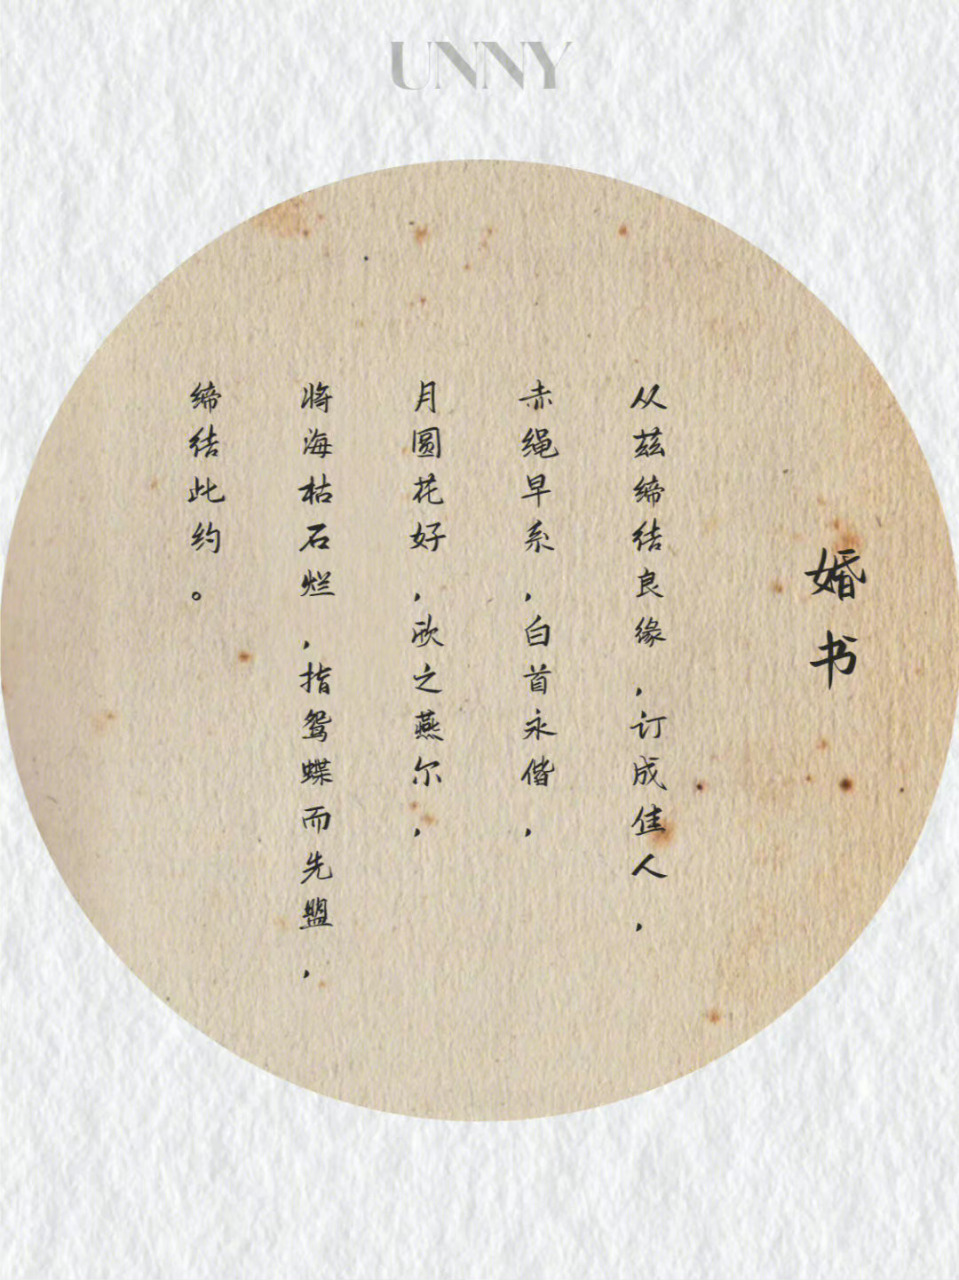 UNNY
婚书
从兹缔结良缘，订成佳人，
赤绳早系，白首永偕，
月圆花好，欣之燕尔，
将海枯石烂，指鸳蝶而先盟，
缔结此约。